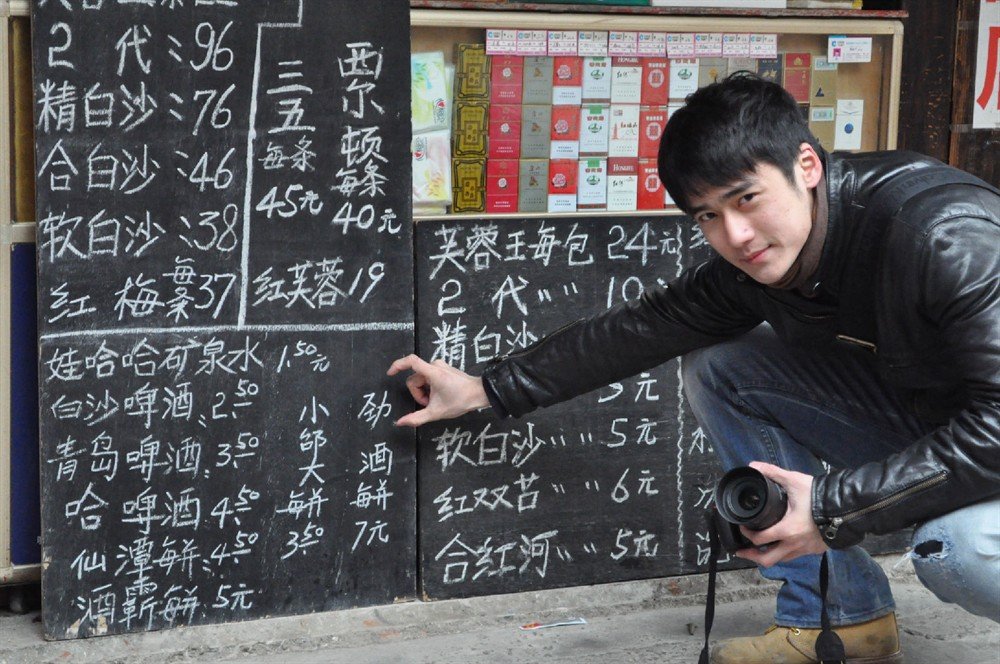 2 代:96
精白沙:76
合白沙:46
软白沙:38
红梅每条37
三五每条45元
西尔顿每条40元
红芙蓉19
娃哈哈矿泉水 1.50元
白沙啤酒:2.50
青岛啤酒:3.50
哈啤酒:4.50
仙潭每瓶:4.50
酒 每瓶 5元
小邵大每瓶3.50
劲酒每瓶7元
芙蓉王每包24元
2 代 〃〃 10
精白沙
3元
软白沙〃〃5元
红双苦〃〃6元
合红河〃〃5元